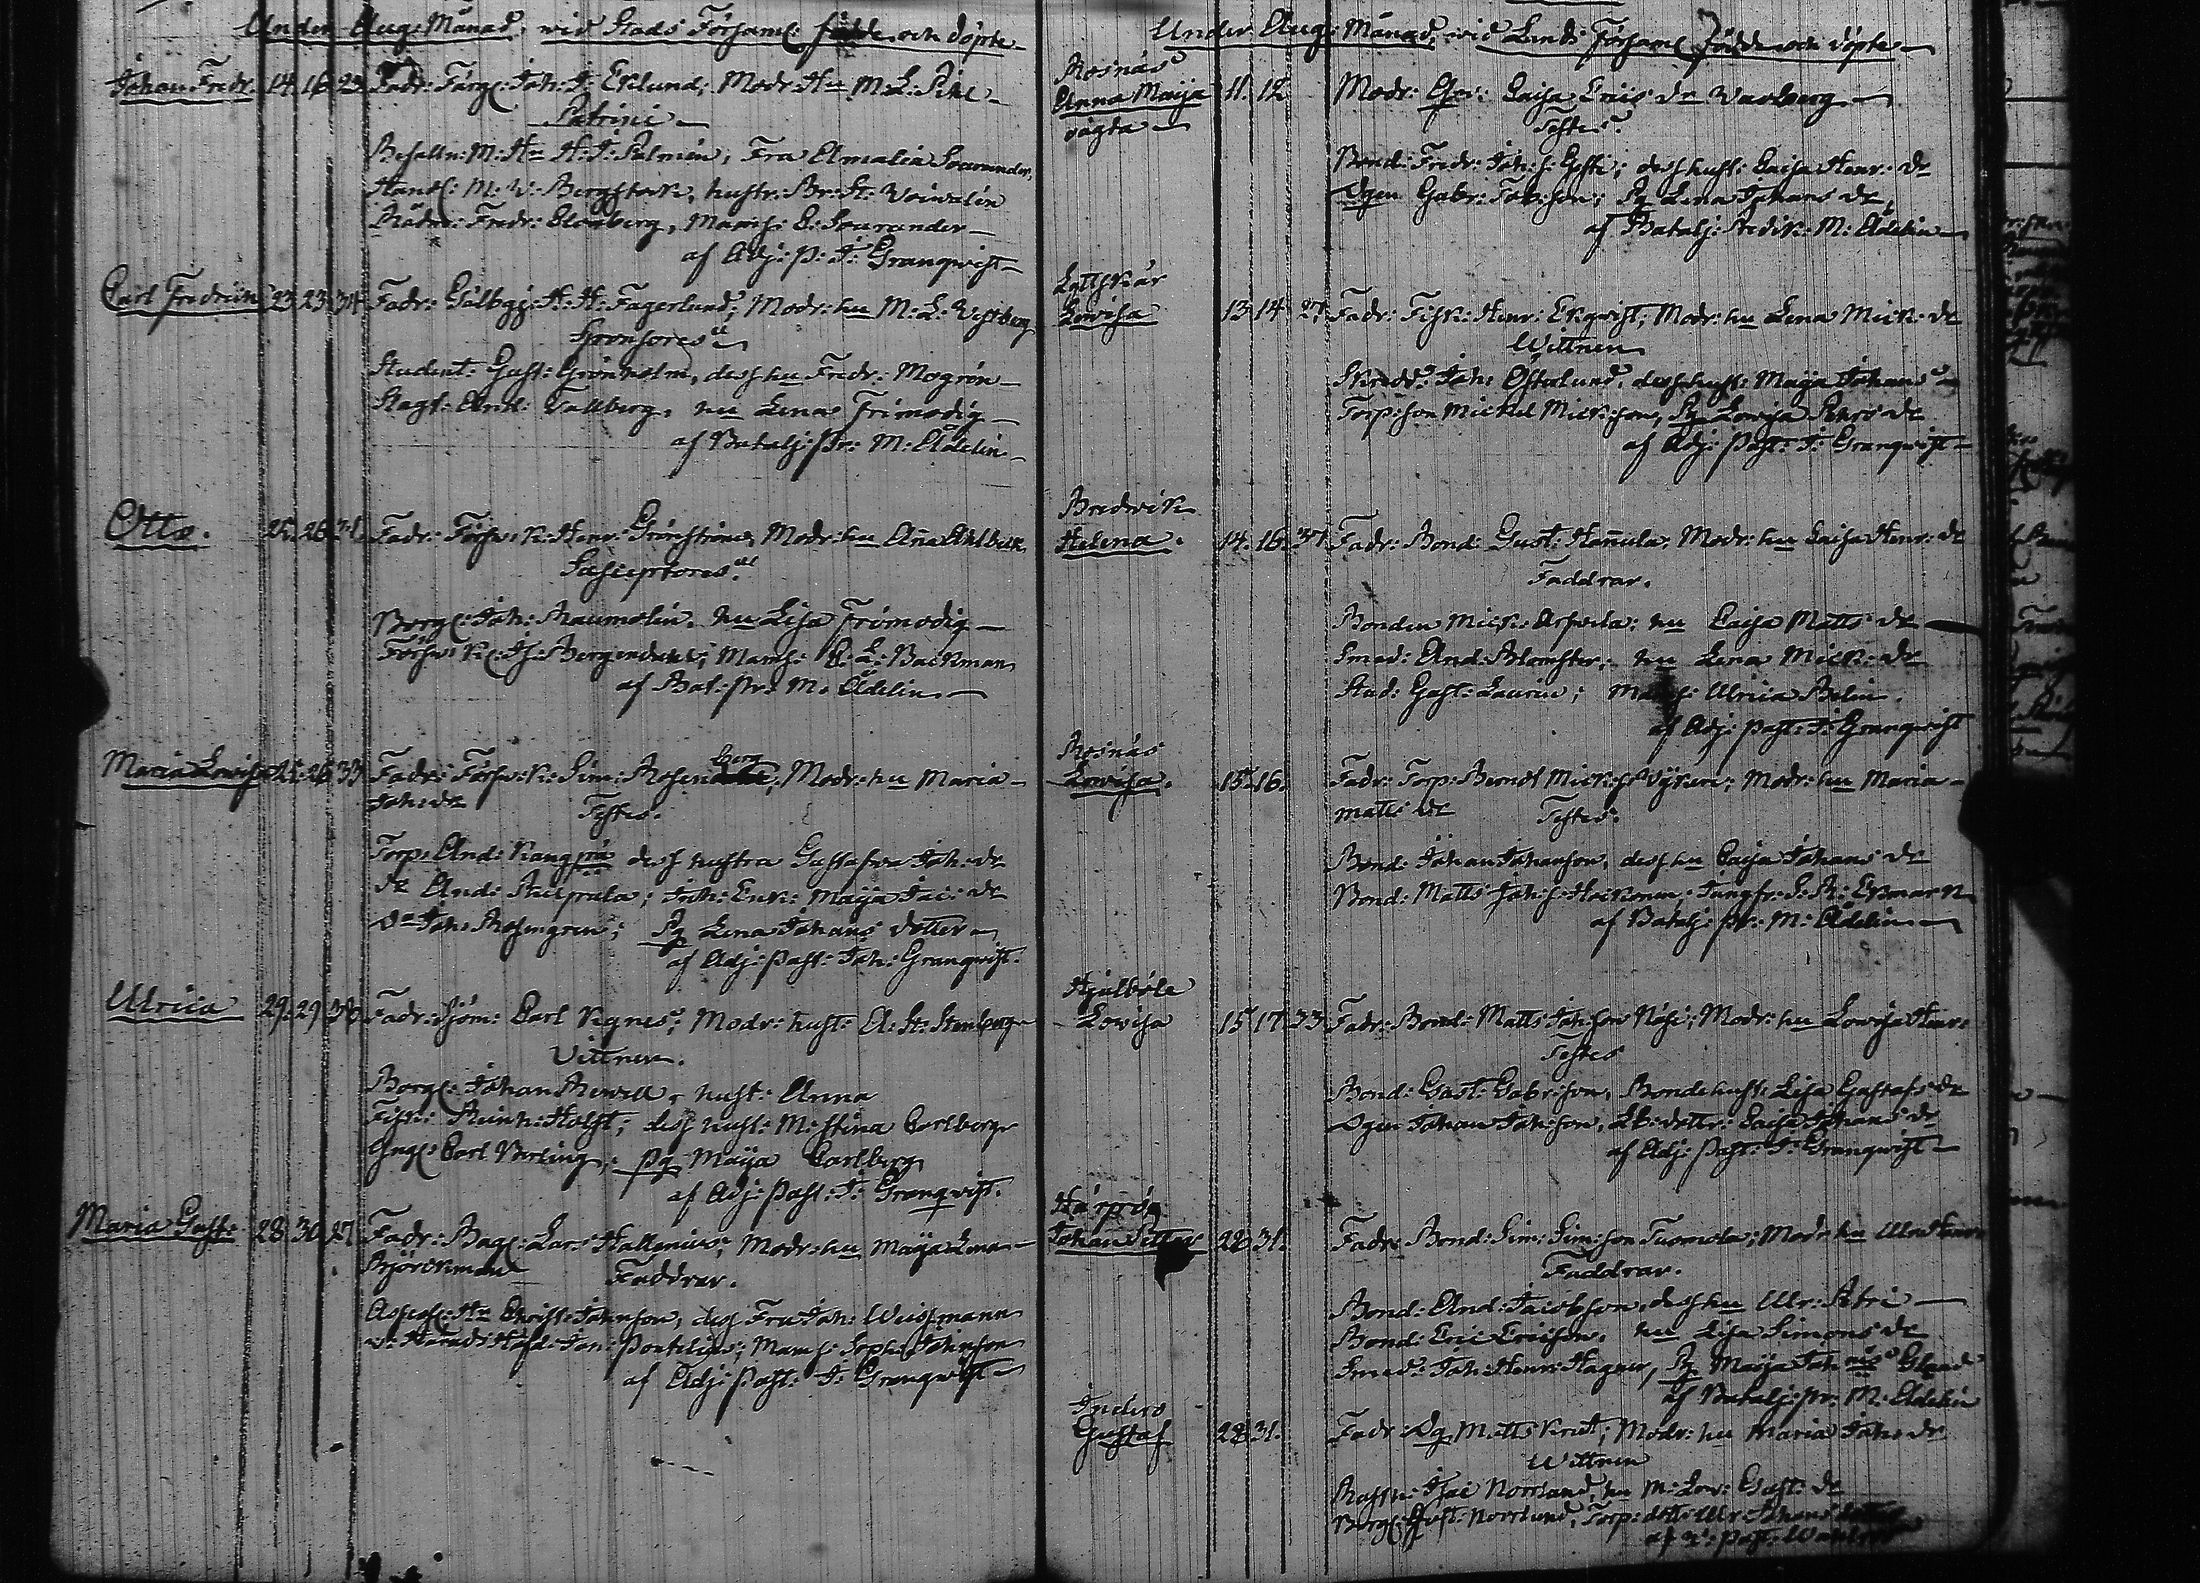 Under Aug: Månad, wid Stads Församl: födde och döpte
Johan Fredr: 14 16 23 Fadr: Färg: Joh: F: Eklund; Modr: Hu M: L: Pihl
Patrini
Befalln: M: Hr H: J: Salmén, Fru Amalia Sourander,
Handl: M: W: Bergstock, hustr: Br: St: Woivalin
Rådm: Fredr: Blomberg, Mams: E: Sourander
af Adj: P: J: Granqwist
Carl Fredrik 23 23 34 Fadr: Gulbgj: H: H: Fagerlund; Modr: hu M: L: Westberg
Sponsores
Student: Gust: Grönholm, dess hu Fredr: Mogrén
And: Tallberg, hu Lena Frimodig
af Batalj: Pr: M: Ådelin
Otto. 25 26 31 Fadr: Försw: K: Henr: Grönström, Modr: hu Aña Ahlbeck
Susceptores
Borgl: Joh: Raumolin, hu Lisa Frimodig
Försw: K: H: Bergendahl; Mams: E: L: Backman
af Bat: pr: M: Ådelin
Maria Lowisa 25 26 33 Fadr: Försw: K: Sim: Rosenberg; Modr: hu Maria
Joh: dr Testes.
Torp: And: dess hustru Gustafva Joh: dr
Dr And: Joh: Enk: Maija Jac: dr
Dr Joh: Rosengren; Pg Lena Johans dotter
af Adj: Past: Joh: Granqwist.
Ulrica 29 29 38 Fadr: Sjöm: Carl Modr: hust: A: St: Stenberg
Vittnen.
Borgl: Johan Rewell, hust: Anna
Fisk: Reinh: Holst; dess hust: M: Stina Carlberg
Carl Berling, pg Maija Carlberg
af Adj: Past: J: Granqwist.
Maria Gust: 28 30 27 Fadr: Bag: Lars Hallenius; Modr: hu Maija Lena
Björckman Faddrar.
Hr Christ: Johnson, dess Fru Joh: Weissmann
v: Härads Höfd: Jon: Pontelius; Mams: Soph: Johnson
af Adj: Past: J: Granqwist
Under Aug: Månad, wid Lands Församl födde och döpte
Rosnäs
Anna Maija 11. 12. Modr: Caisa Eriks dr Warberg
oägta Testes.
Bond: Fredr: Joh: s: dess hust: Caisa Henr: dr
Dgen Gabr: Jak: son; Pg Lena Johans dr,
af Batalj: Predik: M: Ådelin
Lättskär
Lowisa 13 14 27 Fadr: Fisk: Henr: Ekqwist; Modr: hu Lena Mick: dr
Wittnen
Skrädd: Joh: Österlund, dess hust: Maija Johans
Torp: son Mickel Mick: son, Pg Lowisa dr
af Adj: Past: J: Granqwist
Bredwik
Helena. 14 16 37 Fadr: Bond: Gust: Hañula, Modr: hu Caisa Henr: dr
Faddrar.
Bonden Mick: hu Caisa Matts dr
Smed: And: Blomster, hu Lena Mick: dr
Stud: Gust: Laurin; Mams: Ulrica Belin.
af Adj: Past: J: Granqwist
Rosnäs
Lowisa. 15 16. Fadr: Torp: Berndt Mick: s Modr: hu Maria
Matts dr Testes.
Bond: Johan Johanson, dess hu Caisa Johans dr
Bond: Matts Joh: s: Jungfr: S: R: Ekmark
af Batalj: Pr: M: Ådelin
Hjulböle
Lowisa 15 17 33 Fadr: Bond: Matts Joh: son Näse; Modr: hu Lowisa Henr:
Testes
Bond: Gust: Gabr: son, Bonde hust: Lisa Gustafs dr
Dgen Johan Joh: son, Bb: dotter: Caisa Johans dr
af Adj: Past: J: Granqwist
Härprög
Johan Petter 28 31. Fadr Bond: Sim: Sim: son Tuomola; Modr hu Ulr: Henr:
Faddrar.
Bond: And: Jacobson, dess hu Ulr: Petri
Bond: Eric Ericson, hu Lisa Simons dr
Smed: Joh: Henr: Hagner, Pg Maija Joh: Gland
af Batalj: pr: M: Ådelin
Inderö
Gustaf 28 31. Fadr: Dg Matts Knut; Modr: hu Maria Joh: dr
Wittnen
Isac Norrlund, hu M: Low: Gust: dr
Borgl: Gust: Norrlund, Torp: dott: Ulr: Johans dotter